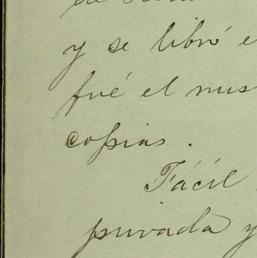 y se libró e
fué el mis
copias.
Fácil
privada y